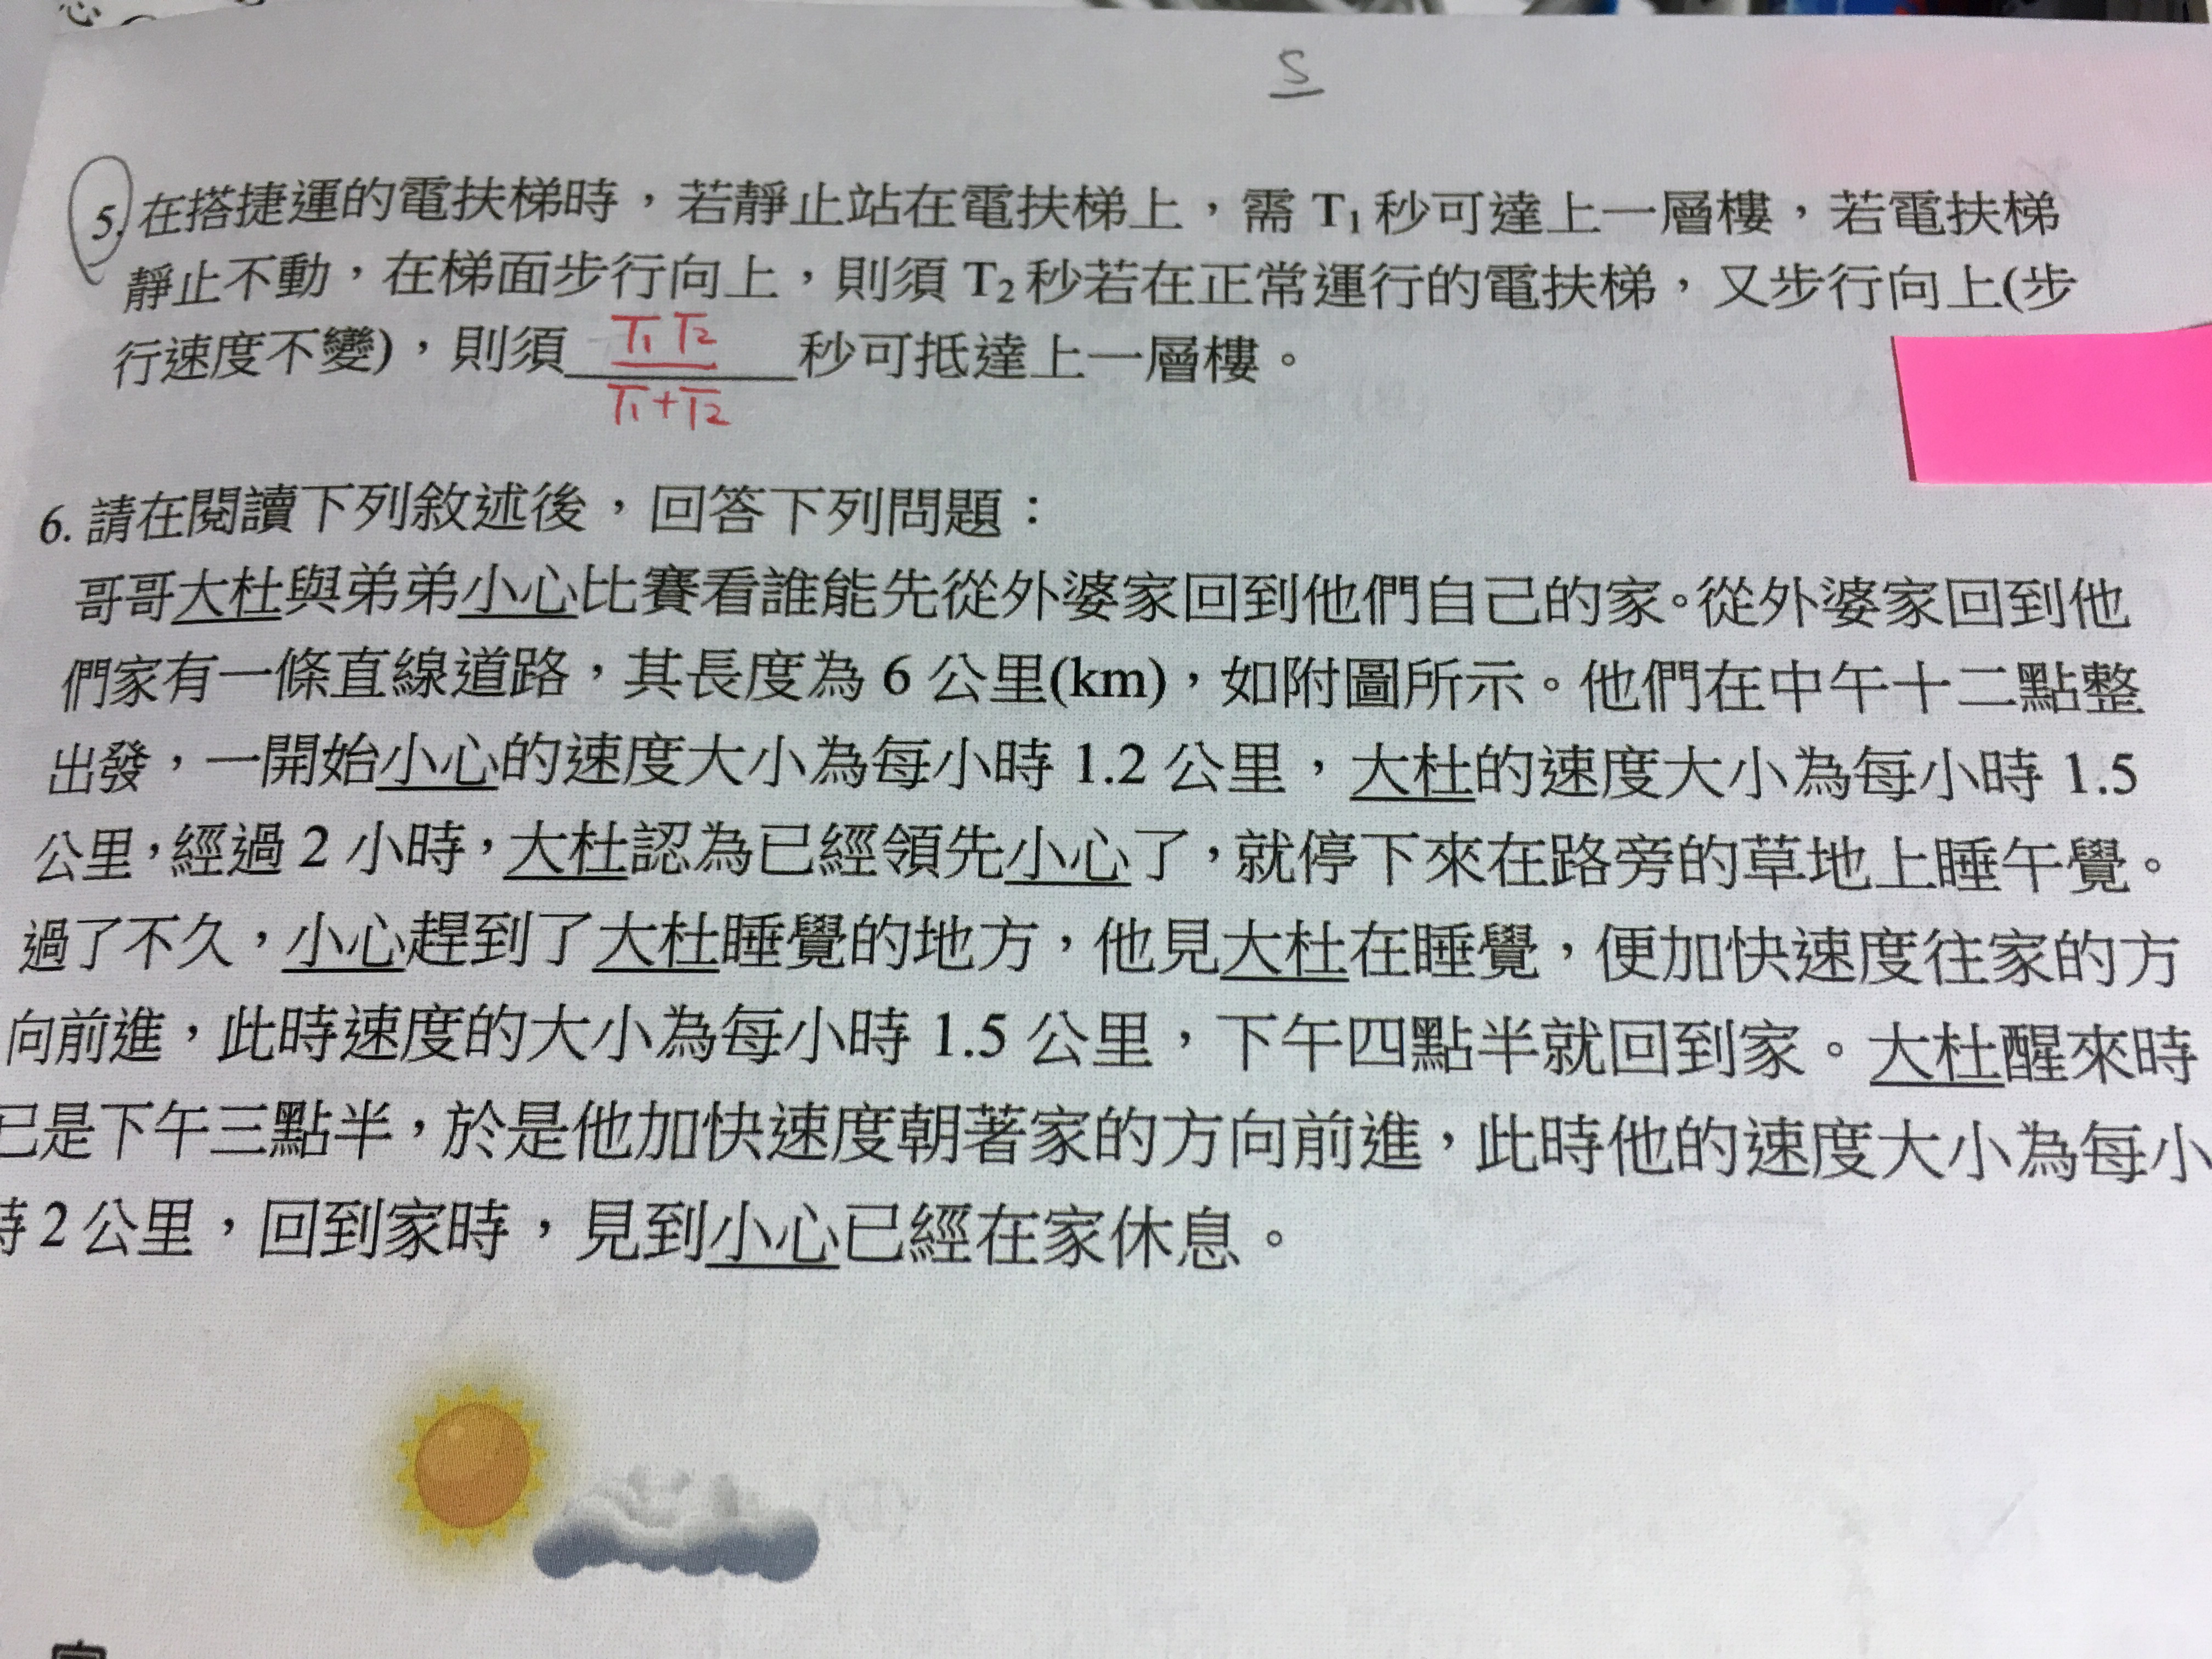 S
5. 在搭捷運的電扶梯時，若靜止站在電扶梯上，需 T₁ 秒可達上一層樓，若電扶梯
靜止不動，在梯面步行向上，則須 T₂ 秒若在正常運行的電扶梯，又步行向上(步
行速度不變)，則須 T₁T₂ / T₁+T₂ 秒可抵達上一層樓。
6. 請在閱讀下列敘述後，回答下列問題：
哥哥大杜與弟弟小心比賽看誰能先從外婆家回到他們自己的家。從外婆家回到他
們家有一條直線道路，其長度為 6 公里(km)，如附圖所示。他們在中午十二點整
出發，一開始小心的速度大小為每小時 1.2 公里，大杜的速度大小為每小時 1.5
公里，經過 2 小時，大杜認為已經領先小心了，就停下來在路旁的草地上睡午覺。
過了不久，小心趕到了大杜睡覺的地方，他見大杜在睡覺，便加快速度往家的方
向前進，此時速度的大小為每小時 1.5 公里，下午四點半就回到家。大杜醒來時
已是下午三點半，於是他加快速度朝著家的方向前進，此時他的速度大小為每小
時 2 公里，回到家時，見到小心已經在家休息。